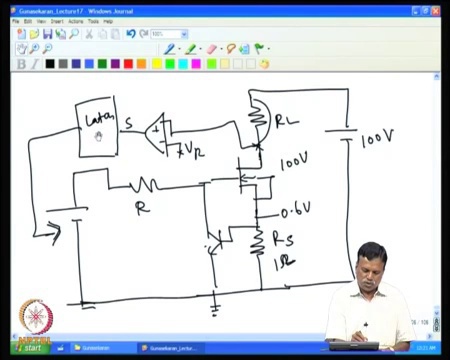 Gunasekaran_Lecture17 - Windows Journal
File Edit View Insert Actions Tools Help
100%
B I
Latch
S
+
VR
RL
100V
100V
R
0.6V
RS
1Ω
NPTEL
start
Gunasekaran
Gunasekaran_Lectu...